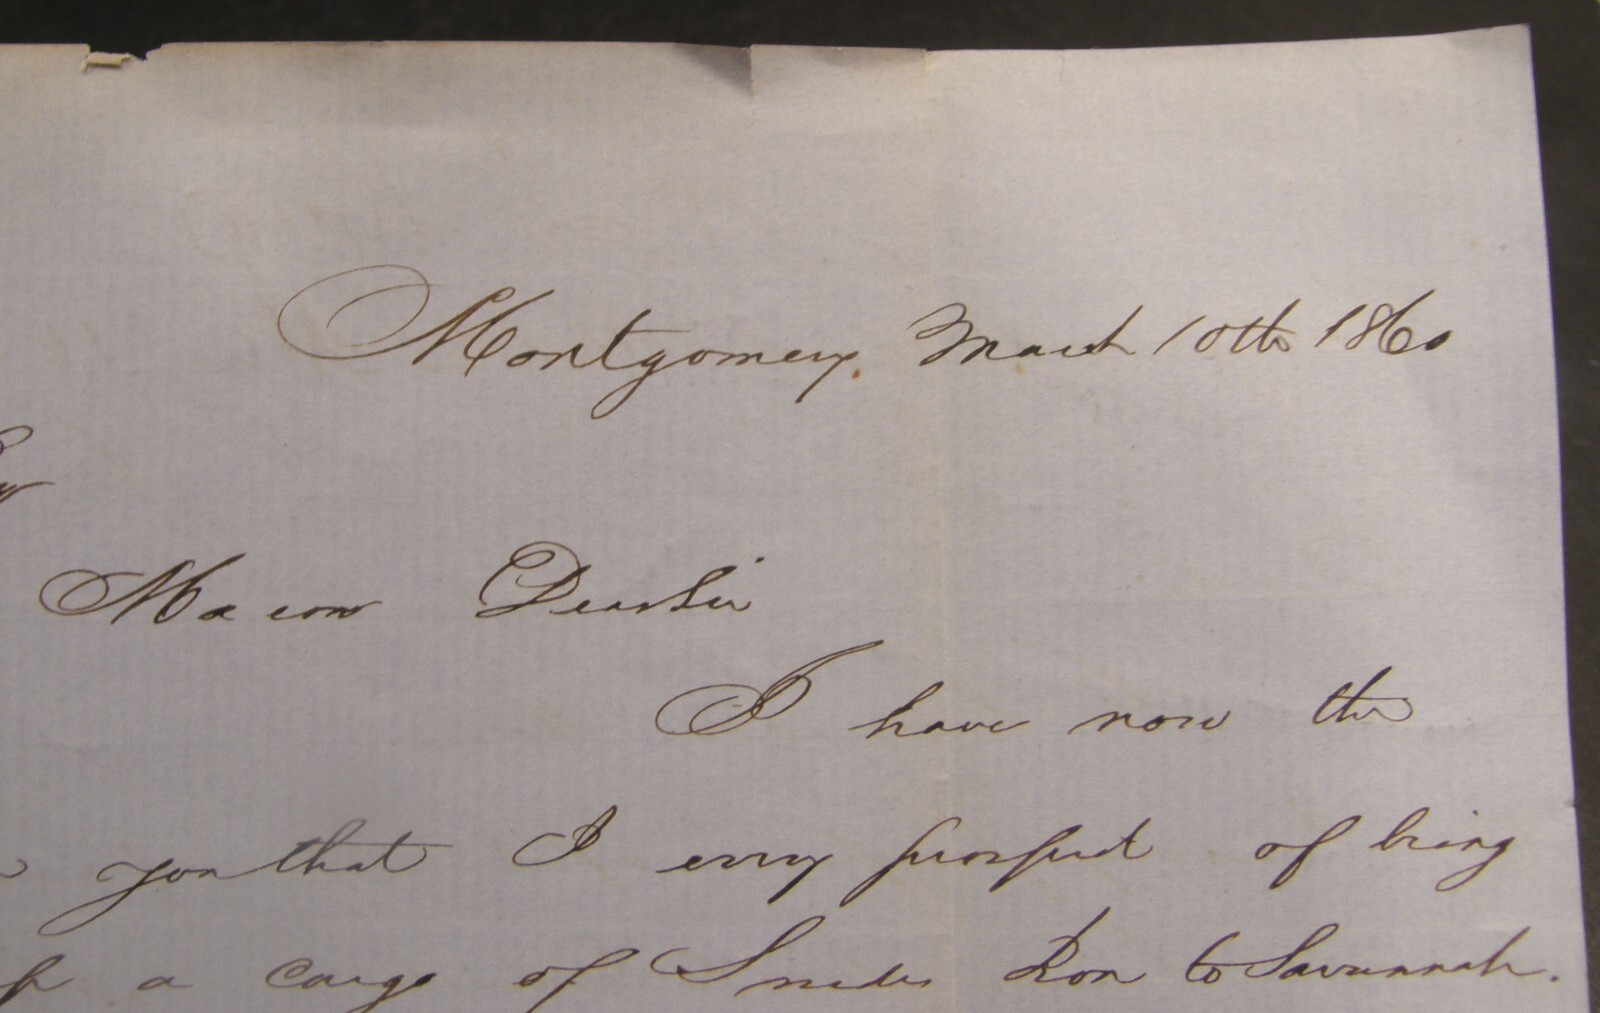 Montgomery, March 10th 1860
Macon Dear Sir
I have now the
you that I every prospect of being
a cargo of Iron to Savannah.